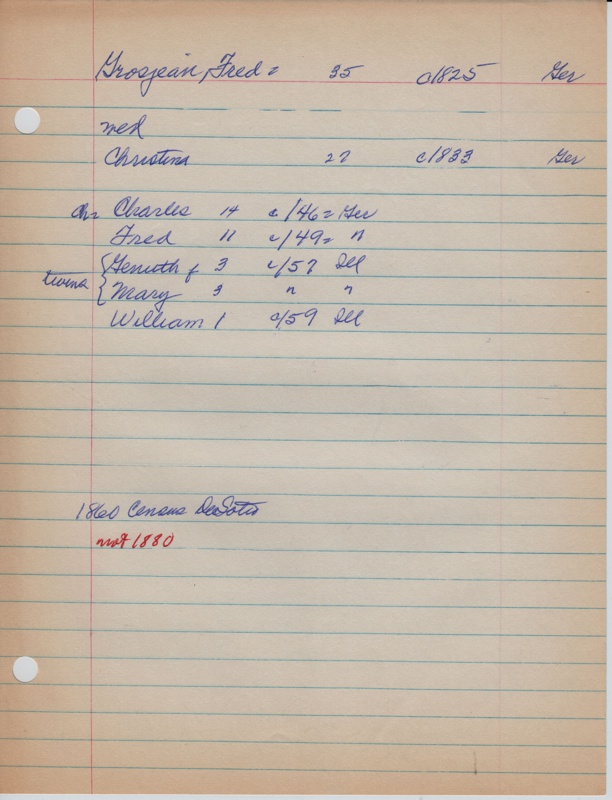 Grosjean, Fred = 35 c/1825 Ger
med
Christina 27 c/1833 Ger
Ch= Charles 14 c/46= Ger
Fred 11 c/49= "
twins { f 3 c/57 Ill
Mary 3 " "
William 1 c/59 Ill
1860 Census DeSoto
not 1880